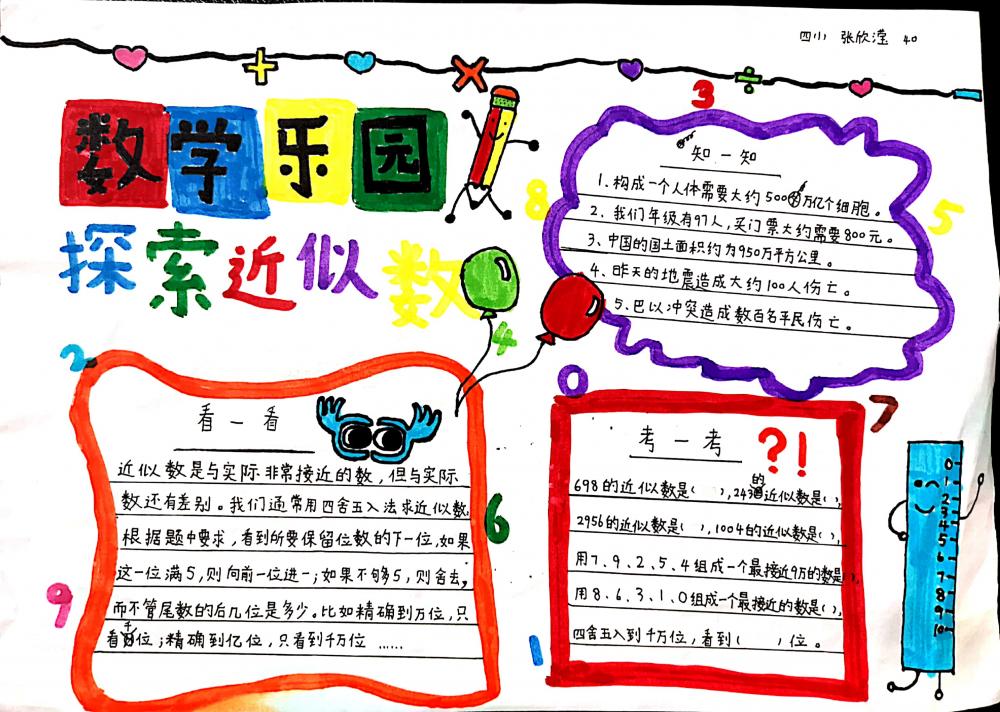 四小 张欣滢 40
数学乐园
探索近似数
知一知
1、构成一个人体需要大约500万亿个细胞。
2、我们年级有97人，买门票大约需要800元。
3、中国的国土面积约为950万平方公里。
4、昨天的地震造成大约100人伤亡。
5、巴以冲突造成数百名平民伤亡。
看一看
近似数是与实际非常接近的数，但与实际
数还有差别。我们通常用四舍五入法求近似数，
根据题中要求，看到所要保留位数的下一位，如果
这一位满5，则向前一位进一；如果不够5，则舍去，
而不管尾数的后几位是多少。比如精确到万位，只
看千位；精确到亿位，只看到千万位……
考一考 ?!
698的近似数是（ ），243的近似数是（ ），
2956的近似数是（ ），1004的近似数是（ ），
用7、9、2、5、4组成一个最接近9万的数是（ ），
用8、6、3、1、0组成一个最接近的数是（ ），
四舍五入到千万位，看到（ ）位。
3
8
5
4
2
0
7
6
9
1
0
1
2
3
4
5
6
7
8
9
10